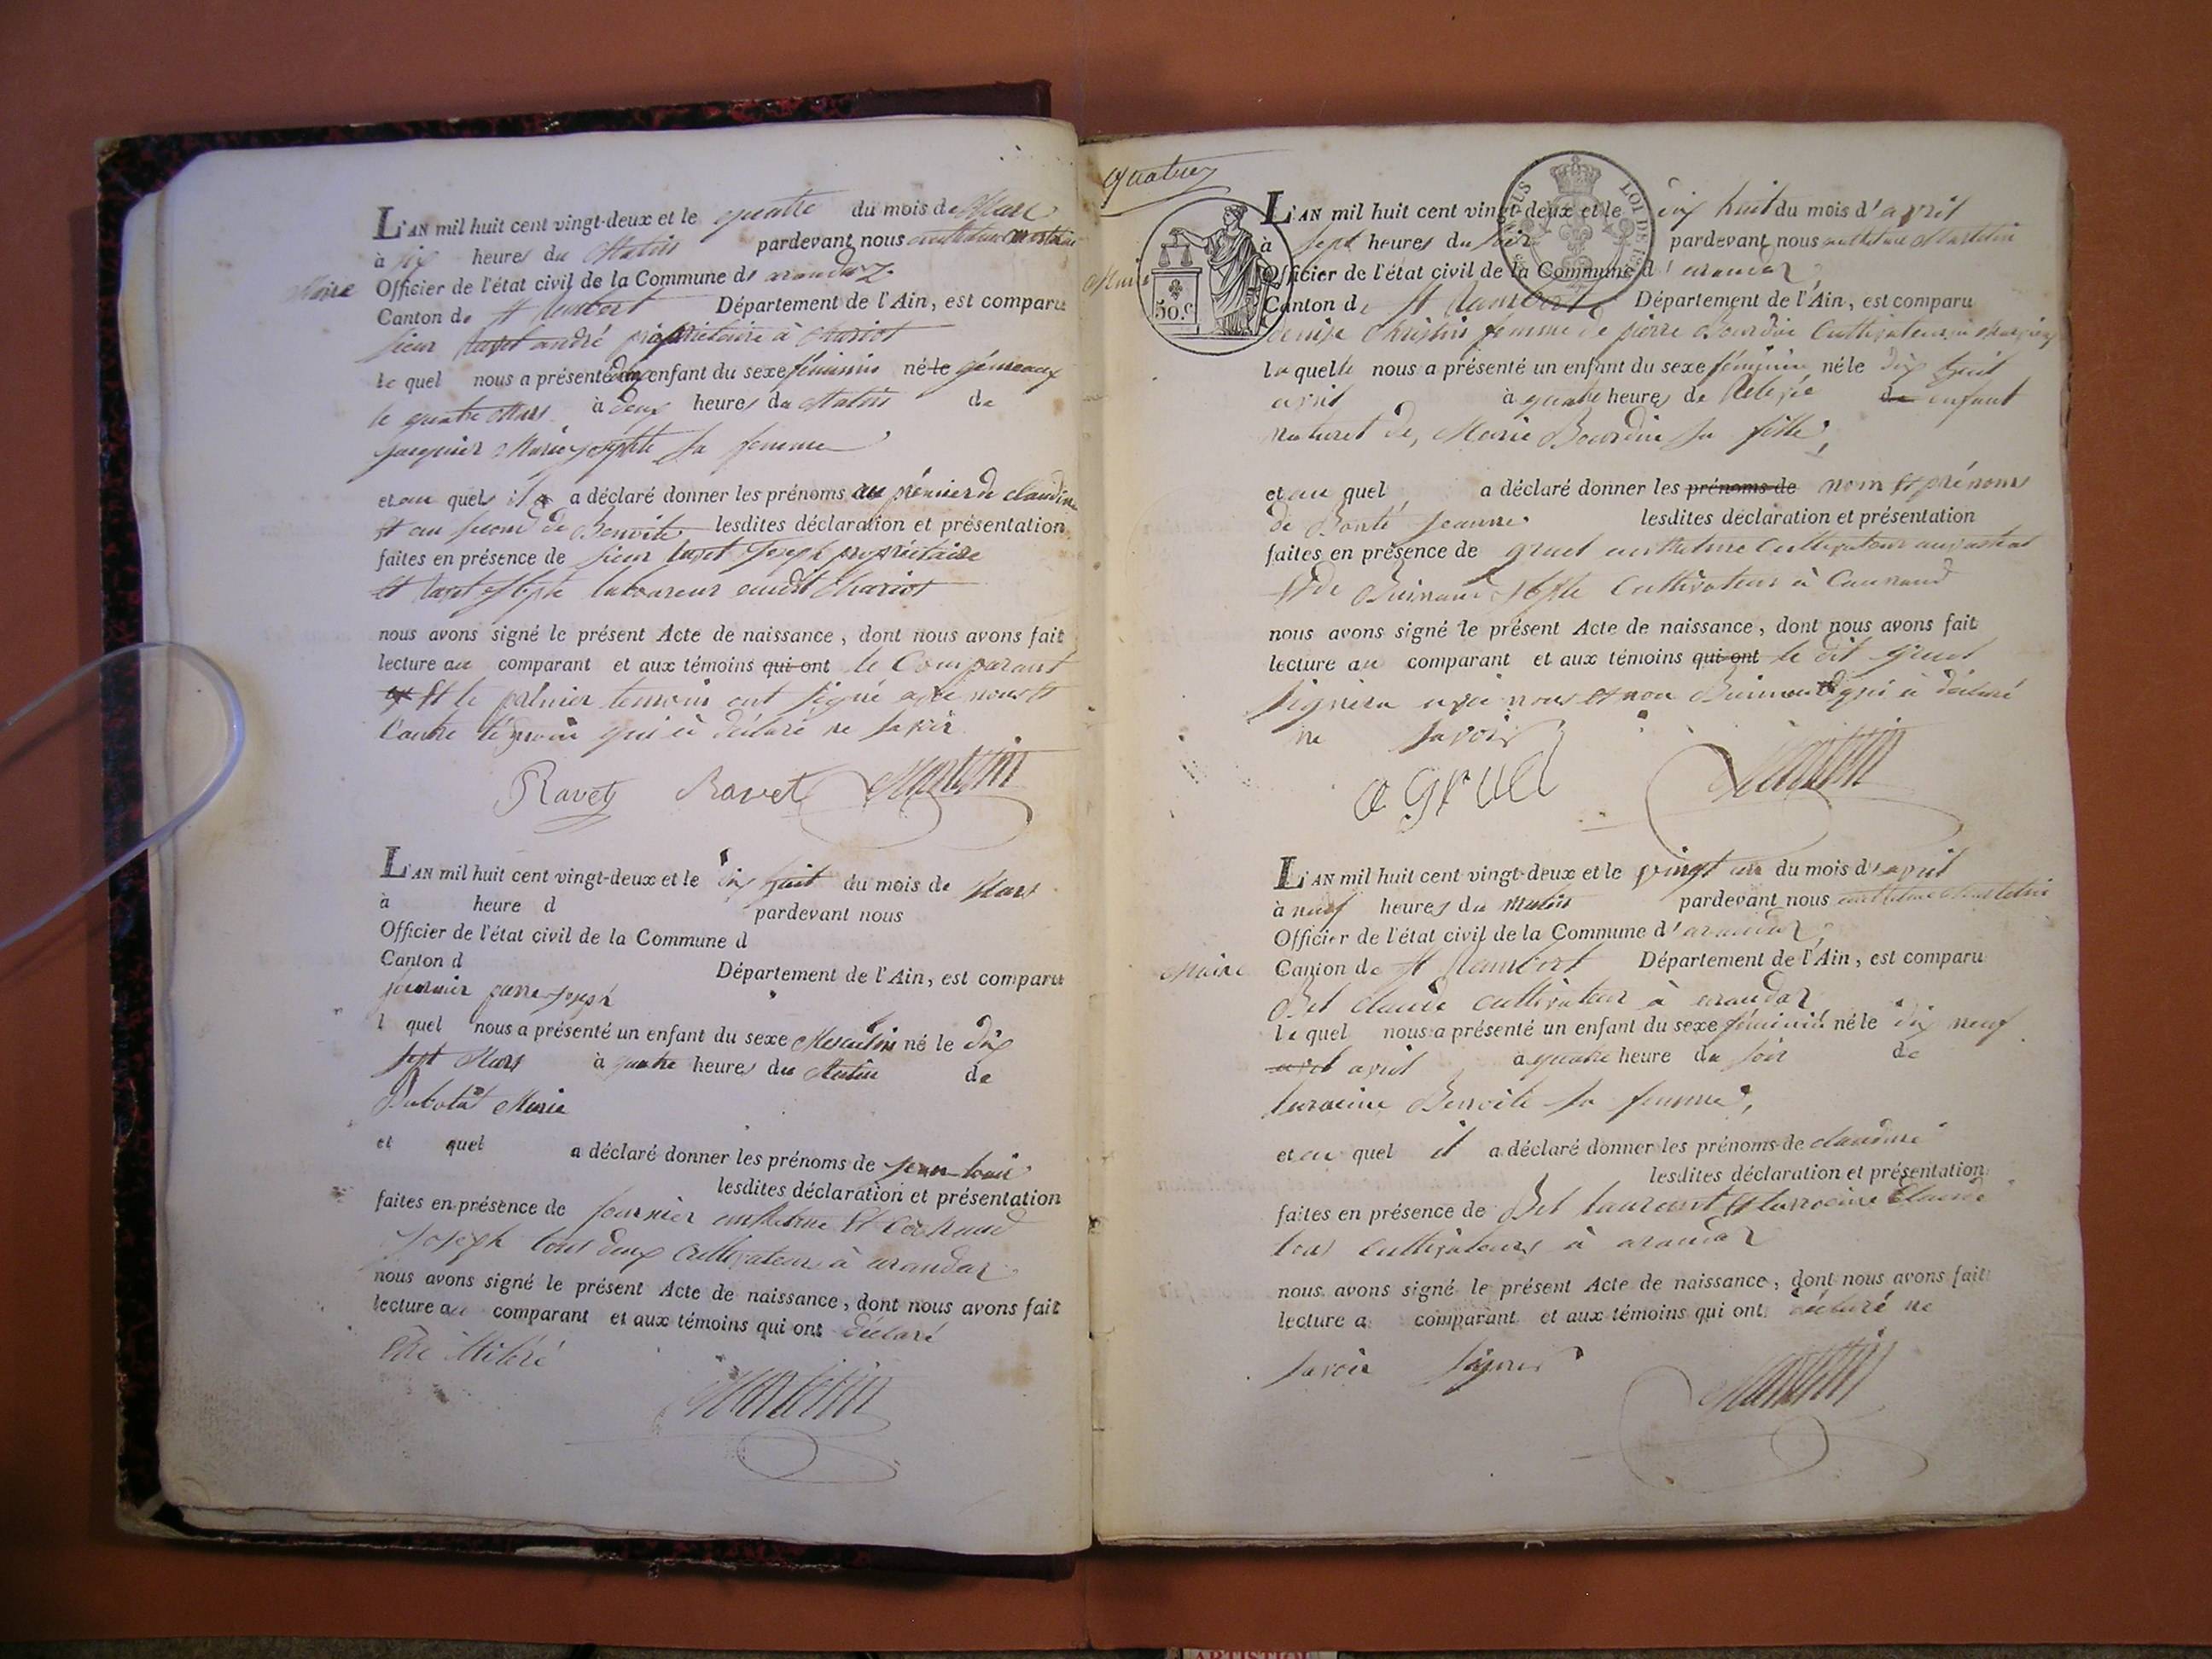 L'AN mil huit cent vingt-deux et le quatre du mois de Mars
à six heures du Matin pardevant nous anthelme martelin
Maire Officier de l'état civil de la Commune d'arandaz
Canton de st Rambert Département de l'Ain, est comparu
sieur Ravet andré propriétaire à Chariot
le quel nous a présenté deux enfant du sexe féminin né le gémeaux
le quatre Mars à deux heures du Matin de
jacquier Marie josephte sa femme
et au quels il a déclaré donner les prénoms au prémier de claudine
et au second de Benoite lesdites déclaration et présentation
faites en présence de sieur Ravet Joseph propriétaire
et Ravet laboureur audit Chariot
nous avons signé le présent Acte de naissance, dont nous avons fait
lecture au comparant et aux témoins qui ont le Comparant
Et le prémier temoin ont signé avec nous et
l'autre témoin qui à déclaré ne savoir
Ravet Ravet Martelin
L'AN mil huit cent vingt-deux et le dix huit du mois de Mars
à heure d pardevant nous
Officier de l'état civil de la Commune d
Canton d Département de l'Ain, est comparu
fournier joseph
l quel nous a présenté un enfant du sexe Masculin né le dix
sept Mars à quatre heures du Matin de
Marie
et quel a déclaré donner les prénoms de jean-louis
lesdites déclaration et présentation
faites en présence de fournier anthelme et Cochaud
joseph tous deux Cultivateurs à arandaz
nous avons signé le présent Acte de naissance, dont nous avons fait
lecture au comparant et aux témoins qui ont déclaré
être illitéré
Martelin
quatre
L'AN mil huit cent vingt-deux et le dix huit du mois d'avril
à sept heures du soir pardevant nous anthelme Martelin
Maire Officier de l'état civil de la Commune d'arandaz
50.c
LOI DE
Canton de st Rambert Département de l'Ain, est comparu
denise Christin femme de pierre Bourdin Cultivateur à
la quelle nous a présenté un enfant du sexe féminin né le dix huit
avril à quatre heures de Relevée de enfant
naturel de, Marie Bourdin sa fille,
et au quel a déclaré donner les prénoms de nom et prénoms
de Bonté jeanne lesdites déclaration et présentation
faites en présence de gruel anthelme Cultivateur
et de Buinand Cultivateur à
nous avons signé le présent Acte de naissance, dont nous avons fait
lecture au comparant et aux témoins qui ont le dit gruel
signera avec nous et non Buinand qui à déclaré
ne savoir
a gruel Martelin
L'AN mil huit cent vingt-deux et le vingt un du mois d'avril
à neuf heures du matin pardevant nous anthelme Martelin
Officier de l'état civil de la Commune d'arandaz
Maire Canton de st Rambert Département de l'Ain, est comparu
Bel claude cultivateur à arandaz
le quel nous a présenté un enfant du sexe féminin né le dix neuf
avril avril à quatre heure du soir de
larracine Benoite sa femme,
et au quel il a déclaré donner les prénoms de claudine
lesdites déclaration et présentation
faites en présence de Bel laurent et larracine Claude
tous cultivateurs à arandaz
nous avons signé le présent Acte de naissance, dont nous avons fait
lecture a comparant et aux témoins qui ont déclaré ne
savoir signer
Martelin